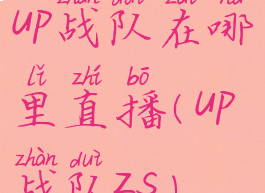 UP战队在哪
lǐ zhí bō
里直播(UP
zhàn duì
战队ZS)